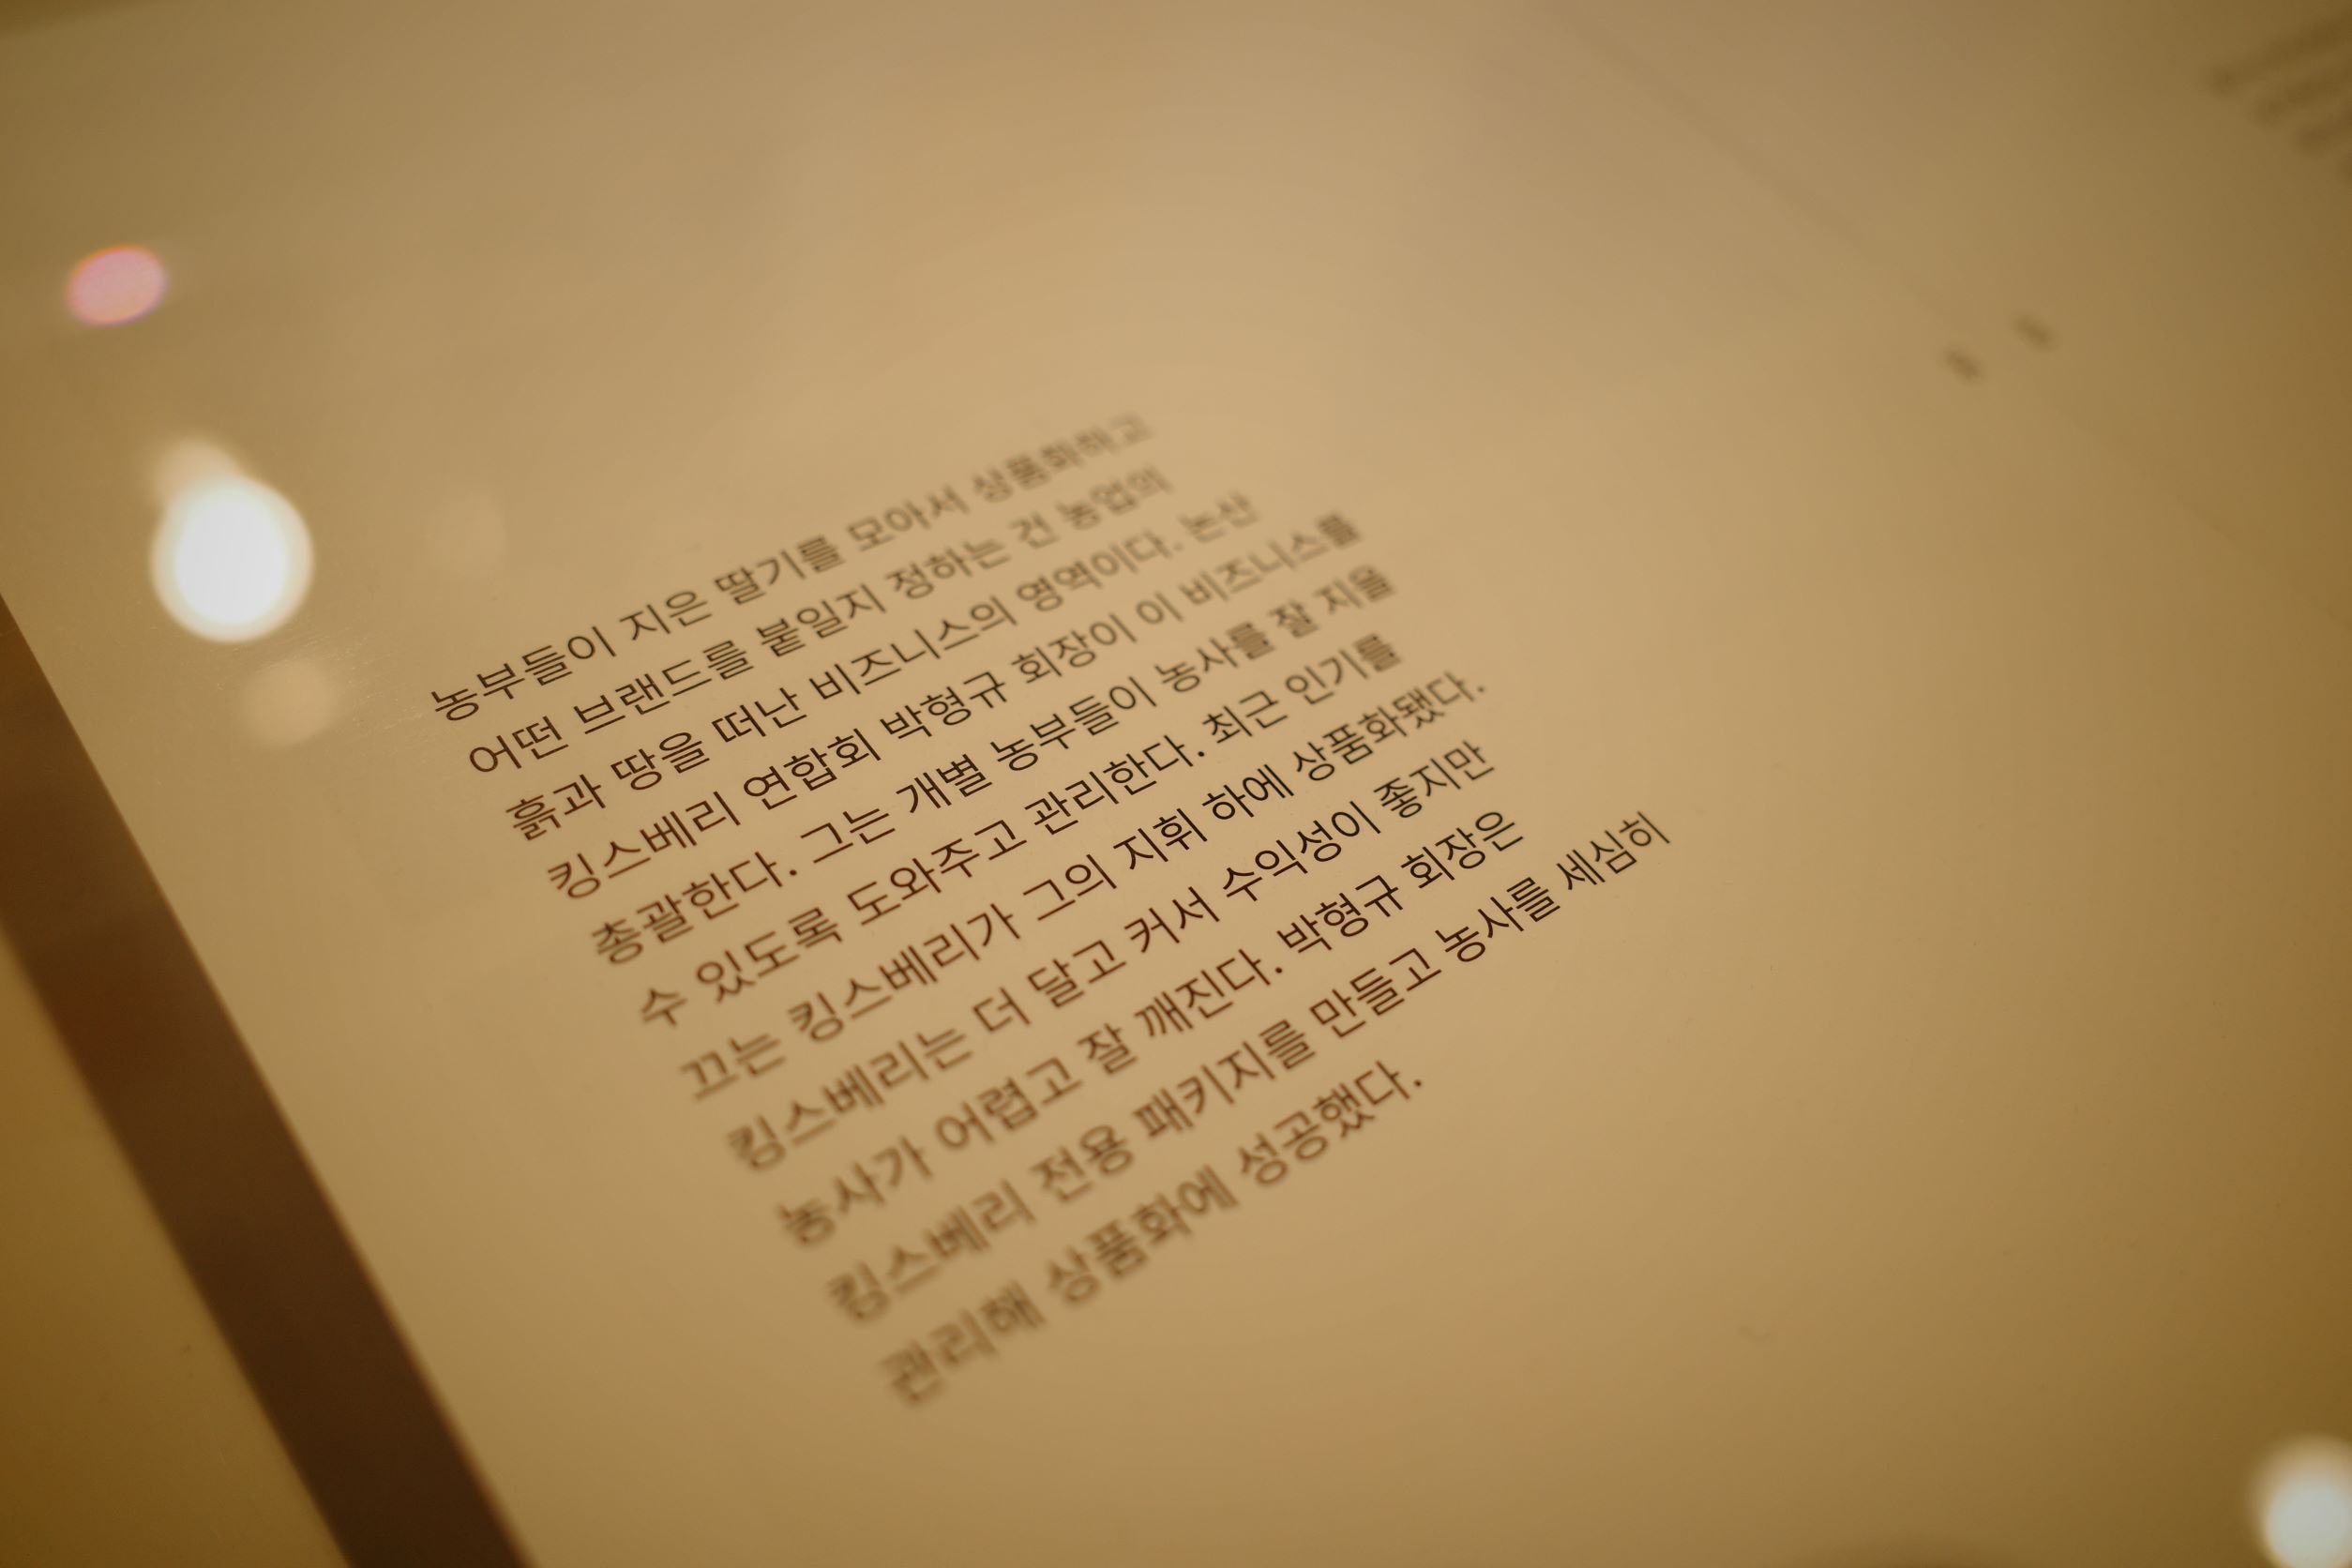 농부들이 지은 딸기를 모아서 상품화하고
어떤 브랜드를 붙일지 정하는 건 농업의
흙과 땅을 떠난 비즈니스의 영역이다. 논산
킹스베리 연합회 박형규 회장이 이 비즈니스를
총괄한다. 그는 개별 농부들이 농사를 잘 지을
수 있도록 도와주고 관리한다. 최근 인기를
끄는 킹스베리가 그의 지휘 하에 상품화됐다.
킹스베리는 더 달고 커서 수익성이 좋지만
농사가 어렵고 잘 깨진다. 박형규 회장은
킹스베리 전용 패키지를 만들고 농사를 세심히
관리해 상품화에 성공했다.